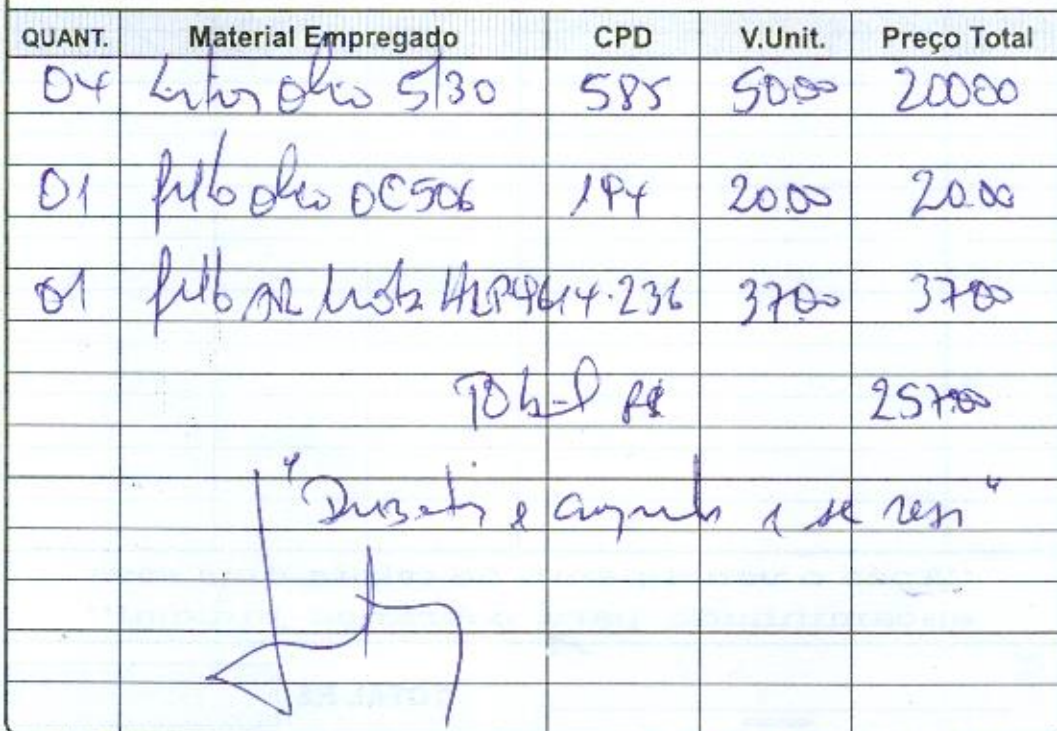 QUANT. Material Empregado CPD V.Unit. Preço Total
04 Litros oleo 5/30 585 5000 20000
01 filtro oleo OC506 194 20.00 20.00
01 filtro AR 3700 3700
Total R$ 25700
"Duzentos e cinquenta e sete reais"
TOTAL R$